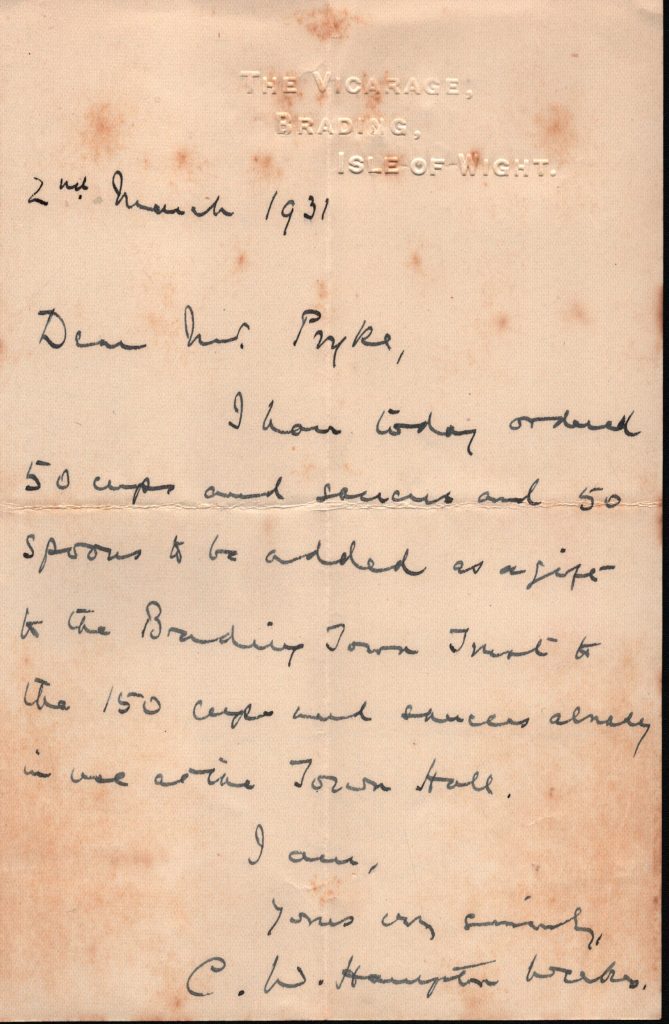 THE VICARAGE,
BRADING,
ISLE OF WIGHT.
2nd. March 1931
Dear Mr. Pryke,
I have today ordered
50 cups and saucers and 50
spoons to be added as a gift
to the Brading Town Trust to
the 150 cups and saucers already
in use at the Town Hall.
I am,
Yours very sincerely,
C. W. Hampton Weekes.